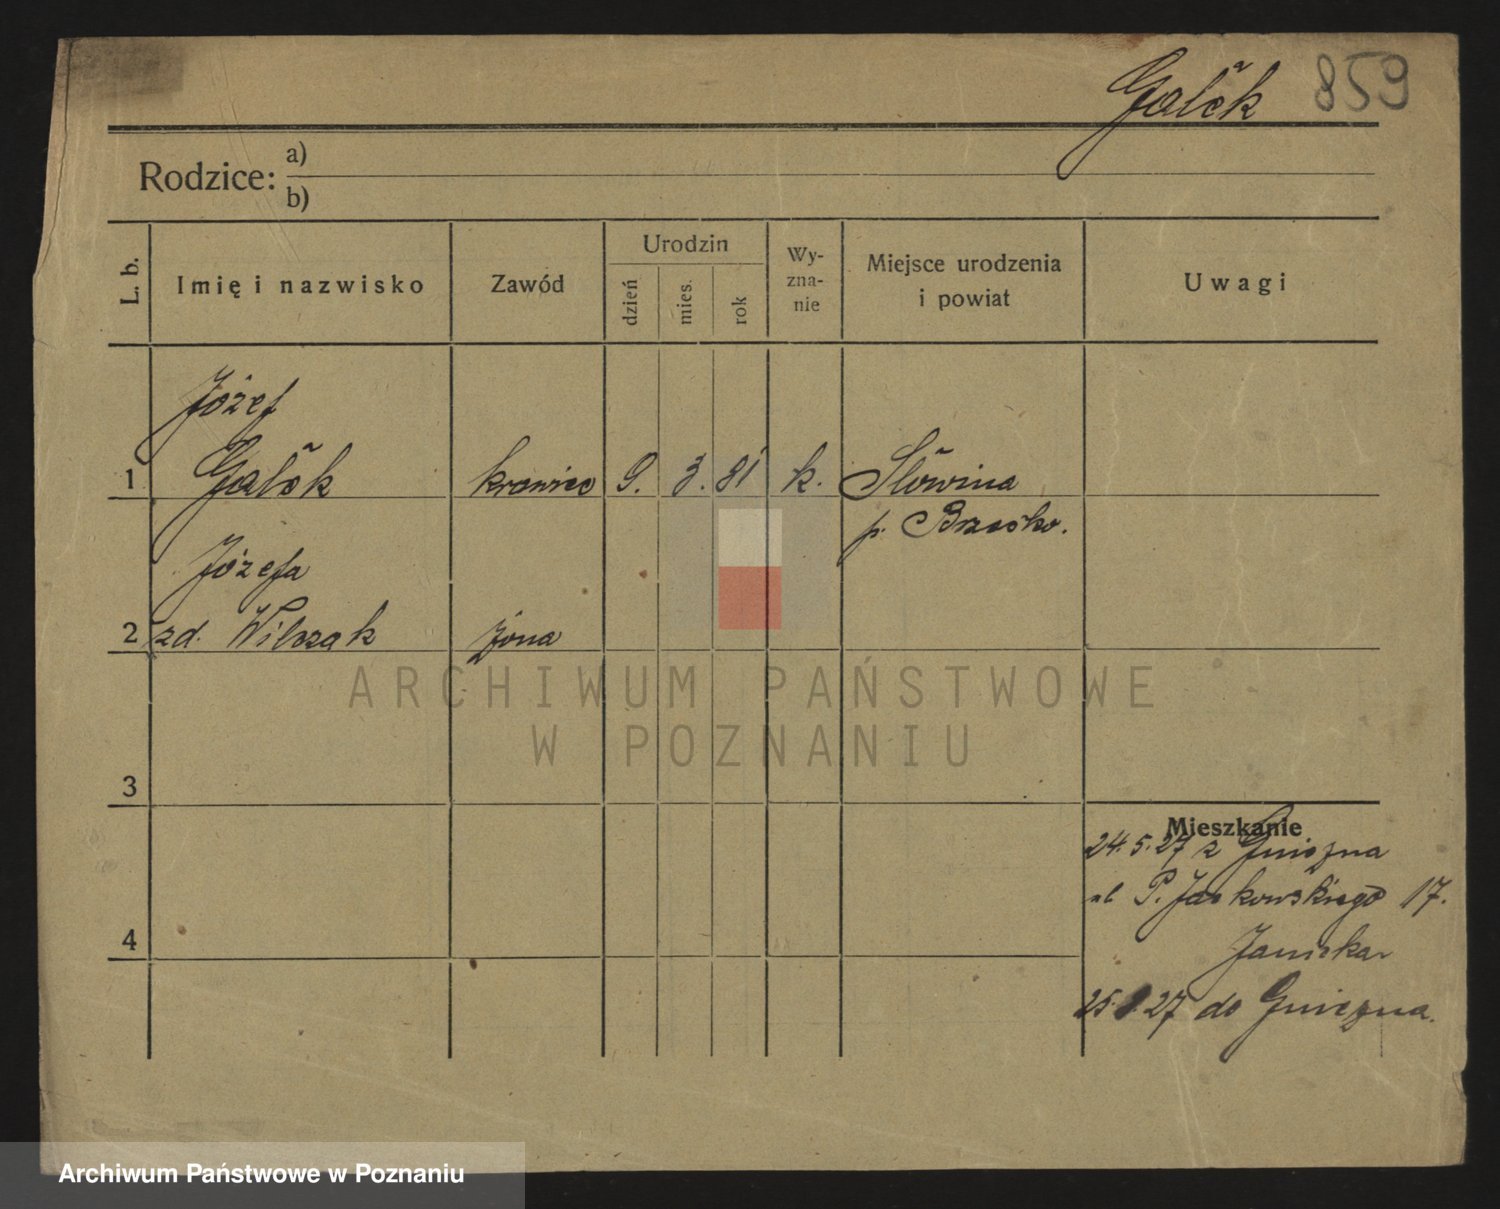 Gołek 859
Rodzice: a)
b)
L. b. Imię i nazwisko Zawód Urodzin dzień mies. rok Wy-zna-nie Miejsce urodzenia i powiat Uwagi
Józef
1 Gołek krawiec 9. 3. 81 k. Słowina
p. Brzesko.
Józefa
2 zd. Wilczak żona
ARCHIWUM PAŃSTWOWE
W POZNANIU
3
Mieszkanie
24.5.27 z Gniezna
ul P. Jackowskiego 17.
4
25. 27 do Gniezna.
Archiwum Państwowe w Poznaniu